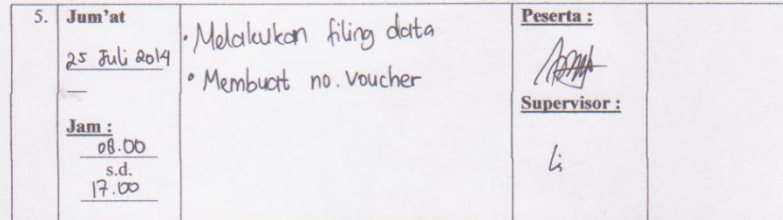 5. Jum'at
25 Juli 2014
Jam :
08.00
s.d.
17.00
• Melakukan filing data
• Membuat no. Voucher
Peserta :
Supervisor :